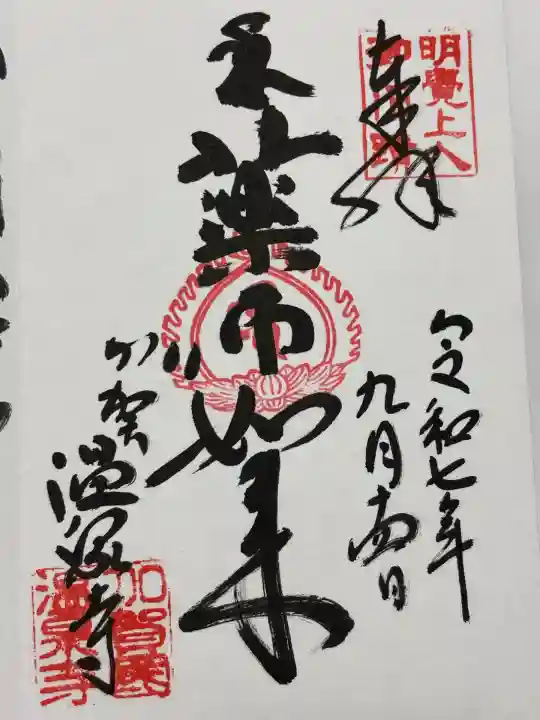 奉拝
明覺上人
令和七年
九月十四日
薬師如来
加賀温泉寺
加賀國
温泉寺